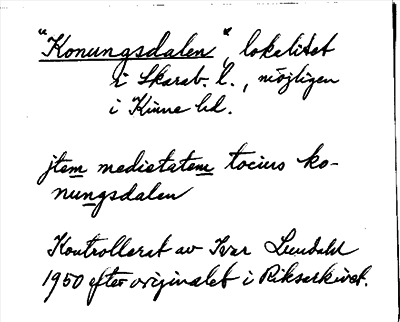 "Konungsdalen", lokalitet
i Skarab. l., möjligen
i Kinne hd.
jtem medietatem tocius ko-
nungsdalen
Kontrollerat av Ivar Lundahl
1950 efter originalet i Riksarkivet.